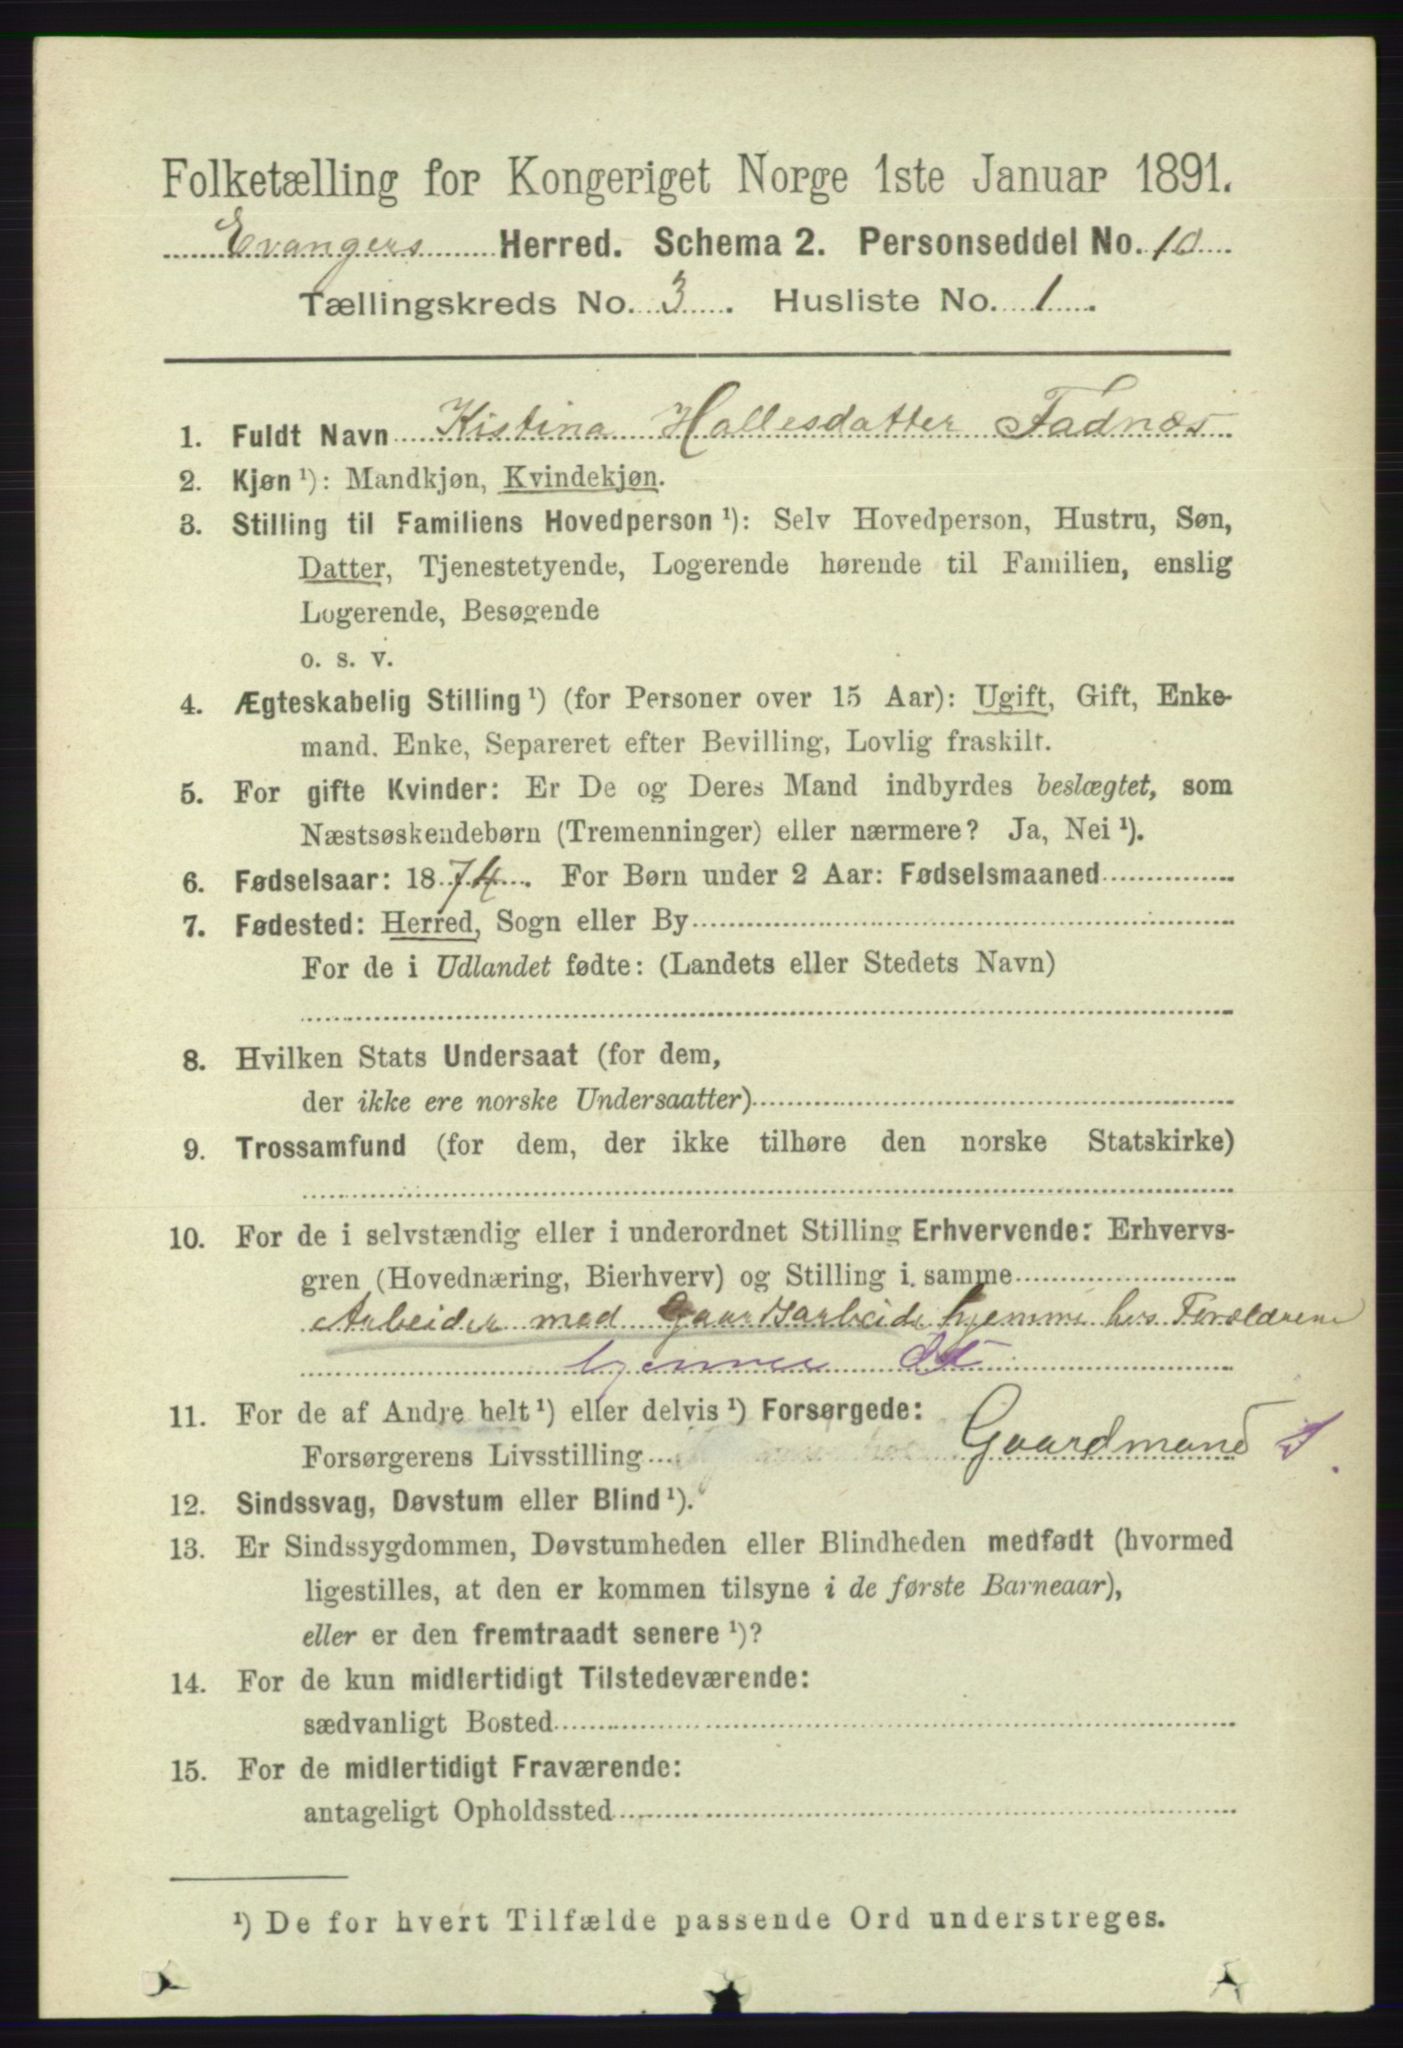 Folketælling for Kongeriget Norge 1ste Januar 1891.
Evangers Herred. Schema 2. Personseddel No. 10
Tællingskreds No. 3. Husliste No. 1.
1. Fuldt Navn Kistina Hallesdatter Fadnæs
2. Kjøn ¹): Mandkjøn, Kvindekjøn.
3. Stilling til Familiens Hovedperson ¹): Selv Hovedperson, Hustru, Søn,
Datter, Tjenestetyende, Logerende hørende til Familien, enslig
Logerende, Besøgende
o. s. v.
4. Ægteskabelig Stilling ¹) (for Personer over 15 Aar): Ugift, Gift, Enke-
mand, Enke, Separeret efter Bevilling, Lovlig fraskilt.
5. For gifte Kvinder: Er De og Deres Mand indbyrdes beslægtet, som
Næstsøskendebørn (Tremenninger) eller nærmere? Ja, Nei ¹).
6. Fødselsaar: 1874. For Børn under 2 Aar: Fødselsmaaned
7. Fødested: Herred, Sogn eller By
For de i Udlandet fødte: (Landets eller Stedets Navn)
8. Hvilken Stats Undersaat (for dem,
der ikke ere norske Undersaatter)
9. Trossamfund (for dem, der ikke tilhøre den norske Statskirke)
10. For de i selvstændig eller i underordnet Stilling Erhvervende: Erhvervs-
gren (Hovednæring, Bierhverv) og Stilling i samme
Arbeider med Gaardsarbeide hjemme hos Forældrene
hjemme
11. For de af Andre helt ¹) eller delvis ¹) Forsørgede:
Forsørgerens Livsstilling Gaardmand
12. Sindssvag, Døvstum eller Blind ¹).
13. Er Sindssygdommen, Døvstumheden eller Blindheden medfødt (hvormed
ligestilles, at den er kommen tilsyne i de første Barneaar),
eller er den fremtraadt senere ¹)?
14. For de kun midlertidigt Tilstedeværende:
sædvanligt Bosted
15. For de midlertidigt Fraværende:
antageligt Opholdssted
¹) De for hvert Tilfælde passende Ord understreges.